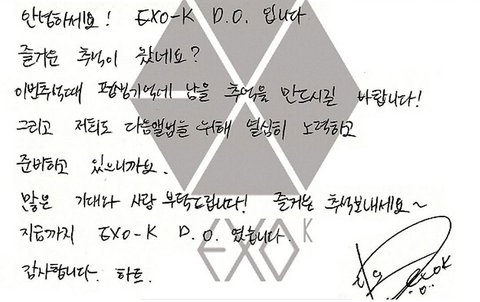 안녕하세요! EXO-K D.O. 입니다
즐거운 추석이 왔네요?
이번추석때 평생기억에 남을 추억을 만드시길 바랍니다!
그리고 저희도 다음앨범을 위해 열심히 노력하고
준비하고 있으니까요.
많은 기대와 사랑 부탁드립니다! 즐거운 추석보내세요~
지금까지 EXO-K D.O. 였습니다.
감사합니다. 하트.
EXO K